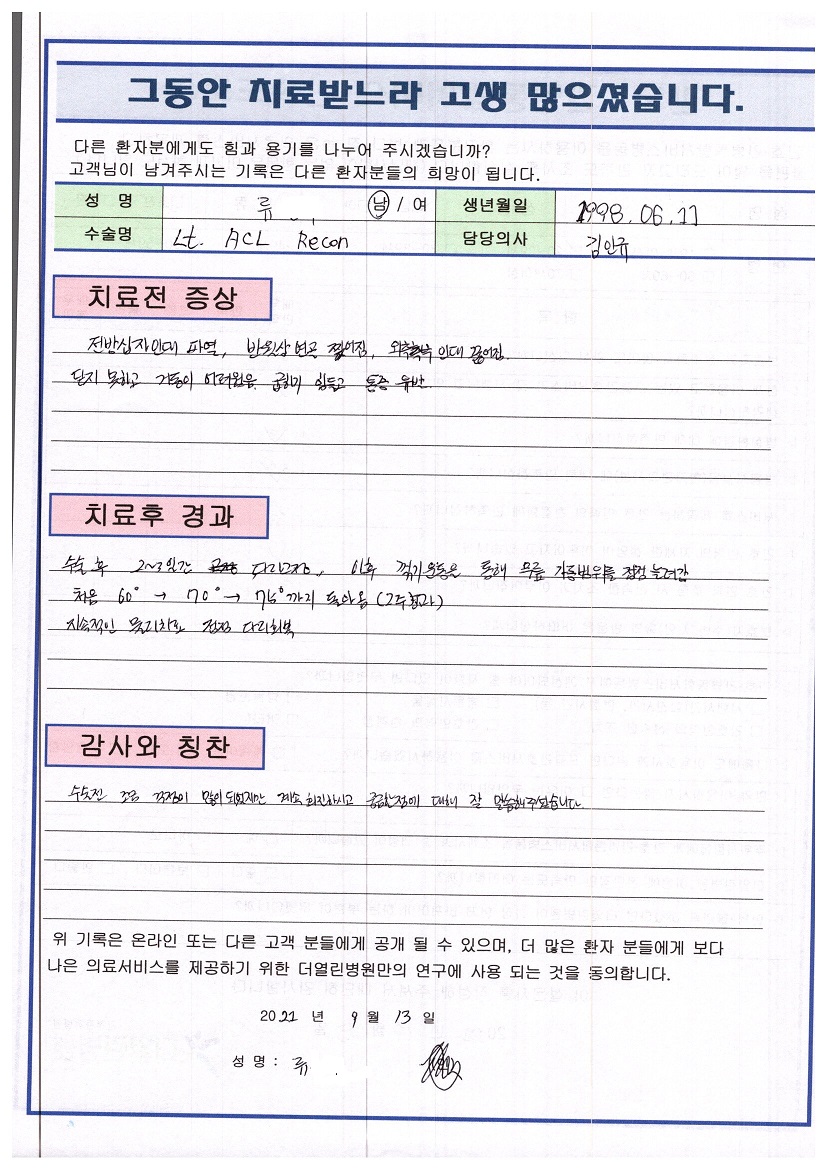 그동안 치료받느라 고생 많으셨습니다.
다른 환자분에게도 힘과 용기를 나누어 주시겠습니까?
고객님이 남겨주시는 기록은 다른 환자분들의 희망이 됩니다.
성 명 류 남 / 여 생년월일 1998.06.11
수술명 Lt. ACL Recon 담당의사 김인규
치료전 증상
전방십자인대 파열, 반월상 연골 찢어짐, 외측측부 인대 끊어짐.
딛지 못하고 거동이 어려웠음 굽히기 힘들고 통증 유발.
치료후 경과
수술 후 2~3일간 다리고정, 이후 꺾기운동을 통해 무릎 가동범위를 점점 늘려감
처음 60° → 70° → 75°까지 돌아옴 (2주경과)
지속적인 물리치료 점점 다리회복
감사와 칭찬
수술전 조금 걱정이 많이 되었지만 계속 회진하시고 궁금한점에 대해 잘 말씀해주셨습니다.
위 기록은 온라인 또는 다른 고객 분들에게 공개 될 수 있으며, 더 많은 환자 분들에게 보다
나은 의료서비스를 제공하기 위한 더열린병원만의 연구에 사용 되는 것을 동의합니다.
2022 년 9 월 13 일
성 명 : 류